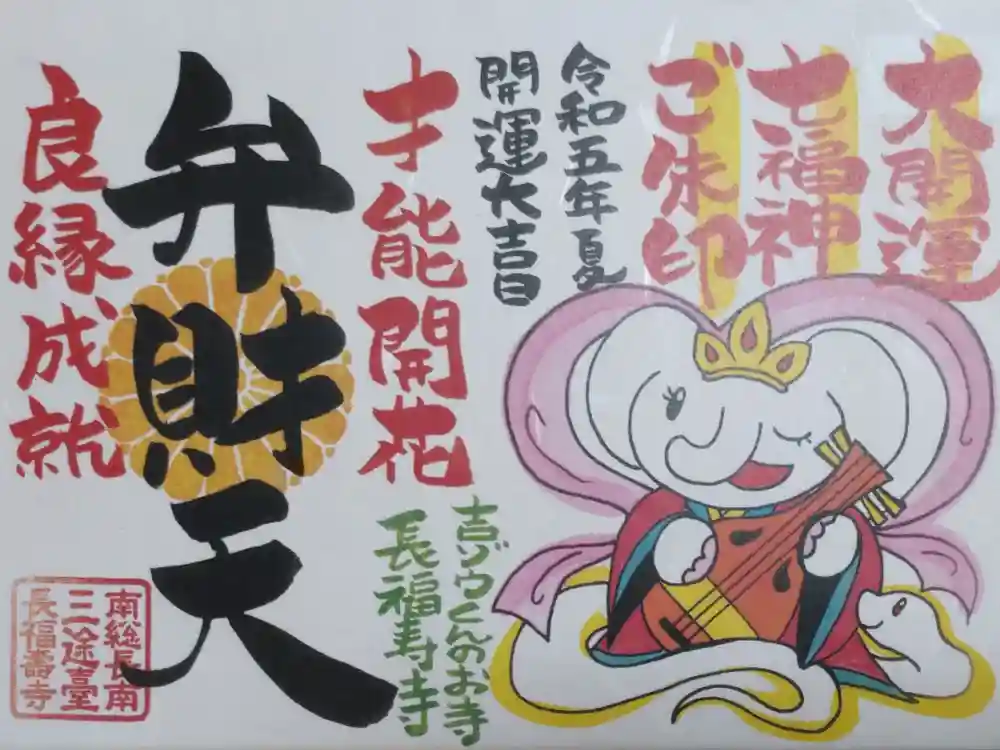 大開運
七福神
ご朱印
令和五年夏
開運大吉日
才能開花
吉ゾウくんのお寺
長福寿寺
弁財天
良縁成就
南総長南
三途臺
長福壽寺